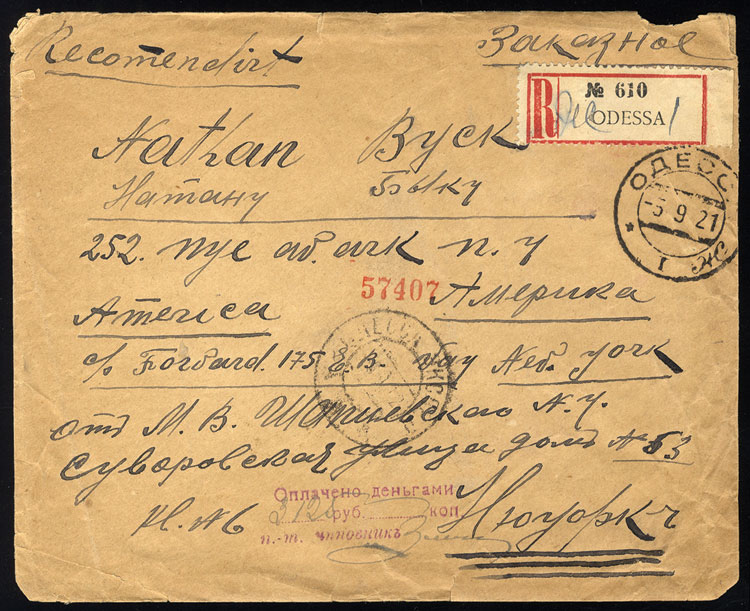 Recomendirt Заказное
R № 610
ODESSA 1
Nathan Вуск
Натану Быку
ОДЕСС
5 9 21
1
252. пус ав. аик п. у
57407
America Америка
c/o Forvard. 175 E. B- way New. york
отъ М. В. N. У.
Суворовская улица домъ № 53
Оплачено деньгами
руб. коп
п.-т. чиновникъ
К. №6 Нюуоркъ